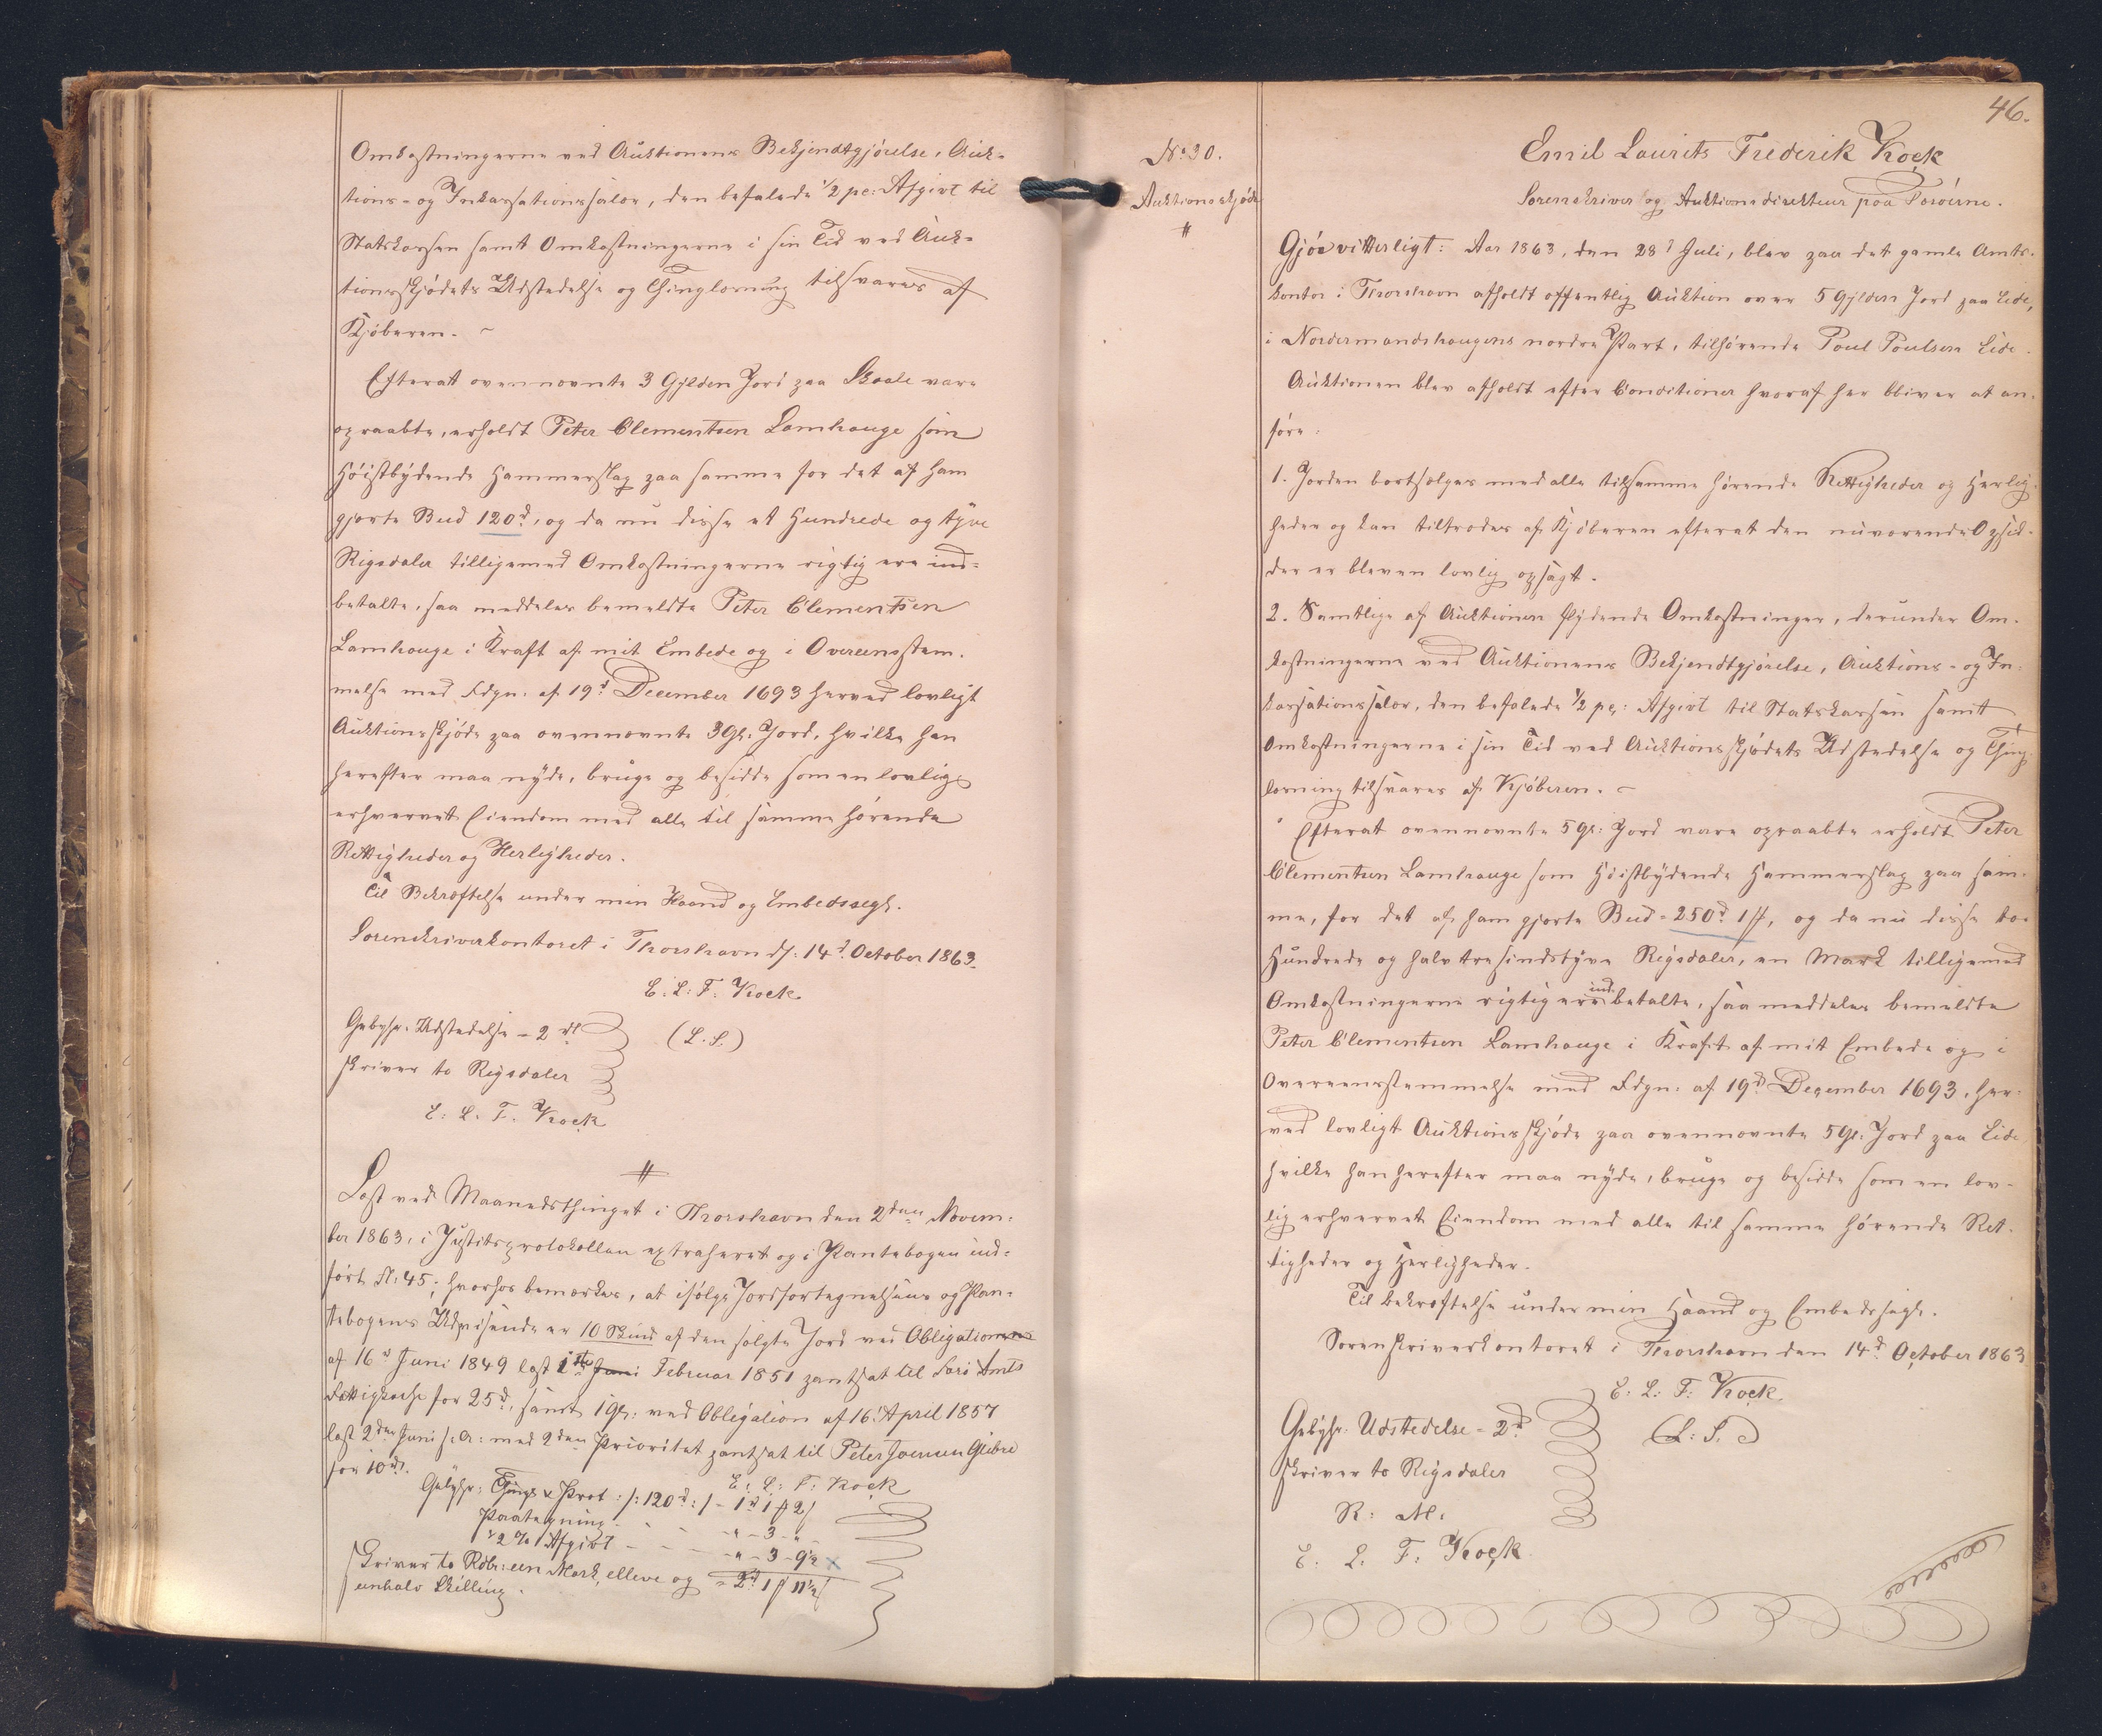 Omkostningerne ved Auktionens Bekjendtgjörelse, Auk-
tions- og Inkassationssalær, den befalede ½ pc: Afgivt til
Statskassen samt Omkostningerne i sin Tid ved Auk-
tionsskjödets Udstedelse og Thinglæsning tilsvares af
Kjöberen. ~
Efterat ovennævnte 3 Gylden Jord paa Skaale vare
opraabte, erholdt Peter Clementsen Lamhauge som
Höistbydende Hammerslag paa samme for det af ham
gjorte Bud 120d, og da nu disse et Hundrede og tyve
Rigsdaler tilligemed Omkostningerne rigtig ere ind-
betalte, saa meddeles bemeldte Peter Clementsen
Lamhauge i Kraft af mit Embede og i Overeensstem-
melse med Fdgn. af 19d December 1693 herved lovligt
Auktionsskjöde paa ovennævnte 3 Gl. Jord, hvilke han
herefter maa nyde, bruge og besidde som en lovlig
erhvervet Eiendom med alle til samme hörende
Rettigheder og Herligheder.
Til Bekræftelse under min Haand og Embedssegl.
Sorenskriverkontoret i Thorshavn d/: 14d October 1863.
E: L: F. Kock
Gebyhr: Udstedelse - 2 rd (L. S.)
skriver to Rigsdaler
E: L. F. Kock
#
Læst ved Maanedsthinget i Thorshavn den 2den Novem-
ber 1863, i Justitsprotokollen extraheret og i Pantebogen ind-
fört fl: 45; hvorhos bemærkes, at ifölge Jordfortegnelsens og Pan-
tebogens Udvisende er 10 Skind af den solgte Jord ved Obligationen
af 16d Juni 1849 læst 1ste Juni Februar 1851 pantsat til Færö Amts
Fattigkasse for 25d, samt 1 Gl: ved Obligation af 16 April 1857
læst 2den Juni s: A: med 2den Prioritet pantsat til Peter Joensen Glibre
for 10 rd.
E: L: F: Kock
Gebyhr: Things & Prot: /:120d:/ - 1d 1 ₻ 2/
Paategning - - - " - 3 - "
½ % Afgivt - - - " - 3 - 9½
skriver to Rdlr: een Mark, elleve og = 2d 1 ₻ 11½/
enhalv Skilling.
No 30.
Auktionsskjöde
#
46.
Emil Laurits Frederik Kock
Sorenskriver og Auktionsdirekteur paa Færöerne.
Gjör vitterligt: Aar 1863, den 28d Juli, blev paa det gamle Amts-
kontor i Thorshavn afholdt offentlig Auktion over 5 Gylden Jord paa Eide,
i Nordermandshaugens nordre Part, tilhörende Poul Poulsen Eide.
Auktionen blev afholdt efter Conditioner hvoraf her bliver at an-
före:
1. Jorden bortsælges med alle til samme hörende Rettigheder og Herlig-
heder og kan tiltrædes af Kjöberen efterat den nuværende Opsid-
der er bleven lovlig opsagt.
2. Samtlige af Auktionen flydende Omkostninger, derunder Om-
kostningerne ved Auktionens Bekjendtgjörelse, Auktions- og In-
kassationssalær, den befalede ½ pc: Afgivt til Statskassen samt
Omkostningerne i sin Tid ved Auktionsskjödets Udstedelse og Thing-
læsning tilsvares af Kjöberen. ~
Efterat ovennævnte 5 Gl: Jord vare opraabte erholdt Peter
Clementsen Lamhauge som Höistbydende Hammerslag paa sam-
me, for det af ham gjorte Bud = 250d 1 ₻, og da nu disse to
Hundrede og halvtresindstyve Rigsdaler, en Mark tilligemed
Omkostningerne rigtig ere ind-betalte, saa meddeles bemeldte
Peter Clementsen Lamhauge i Kraft af mit Embede og i
Overeensstemmelse med Fdgn: af 19d December 1693, her-
ved lovligt Auktionsskjöde paa ovennævnte 5 Gl: Jord paa Eide
hvilke han herefter maa nyde, bruge og besidde som en lov-
lig erhvervet Eiendom med alle til samme hörende Ret-
tigheder og Herligheder.
Til bekræftelse under min Haand og Embedssegl.
Sorenskriverkontoret i Thorshavn den 14d October 1863
E: L: F: Kock
Gebyhr: Udstedelse = 2d (L: S.)
skriver to Rigsdaler
R: M:
E. L. F: Kock